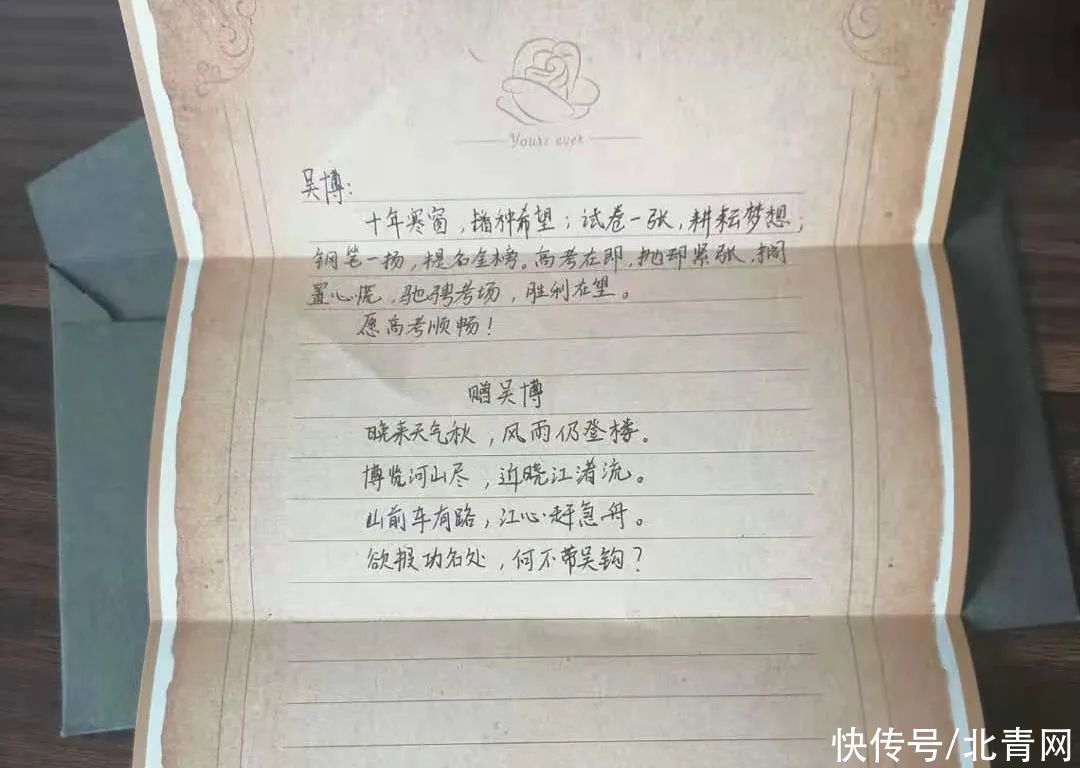 Yours ever
吴博：
十年寒窗，播种希望；试卷一张，耕耘梦想；
钢笔一扬，提名金榜。高考在即，抛却紧张，搁
置心慌，驰骋考场，胜利在望。
愿高考顺畅！
赠吴博
晚来天气秋，风雨仍登楼。
博览河山尽，近晓江渚流。
山前车有路，江心赶急舟。
欲报功名处，何不带吴钩？
快传号/北青网